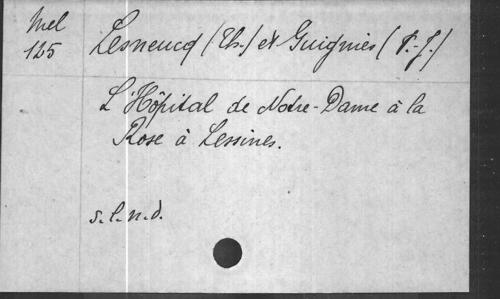 Mel
125
Lesneucq (Th.) et Guignies (P.-J.)
L'Hôpital de Notre-Dame à la
Rose à Lessines.
s.l.n.d.